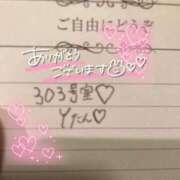 ご自由にどうぞ
ありがとう
ございます
303号室♡
Yたん♡